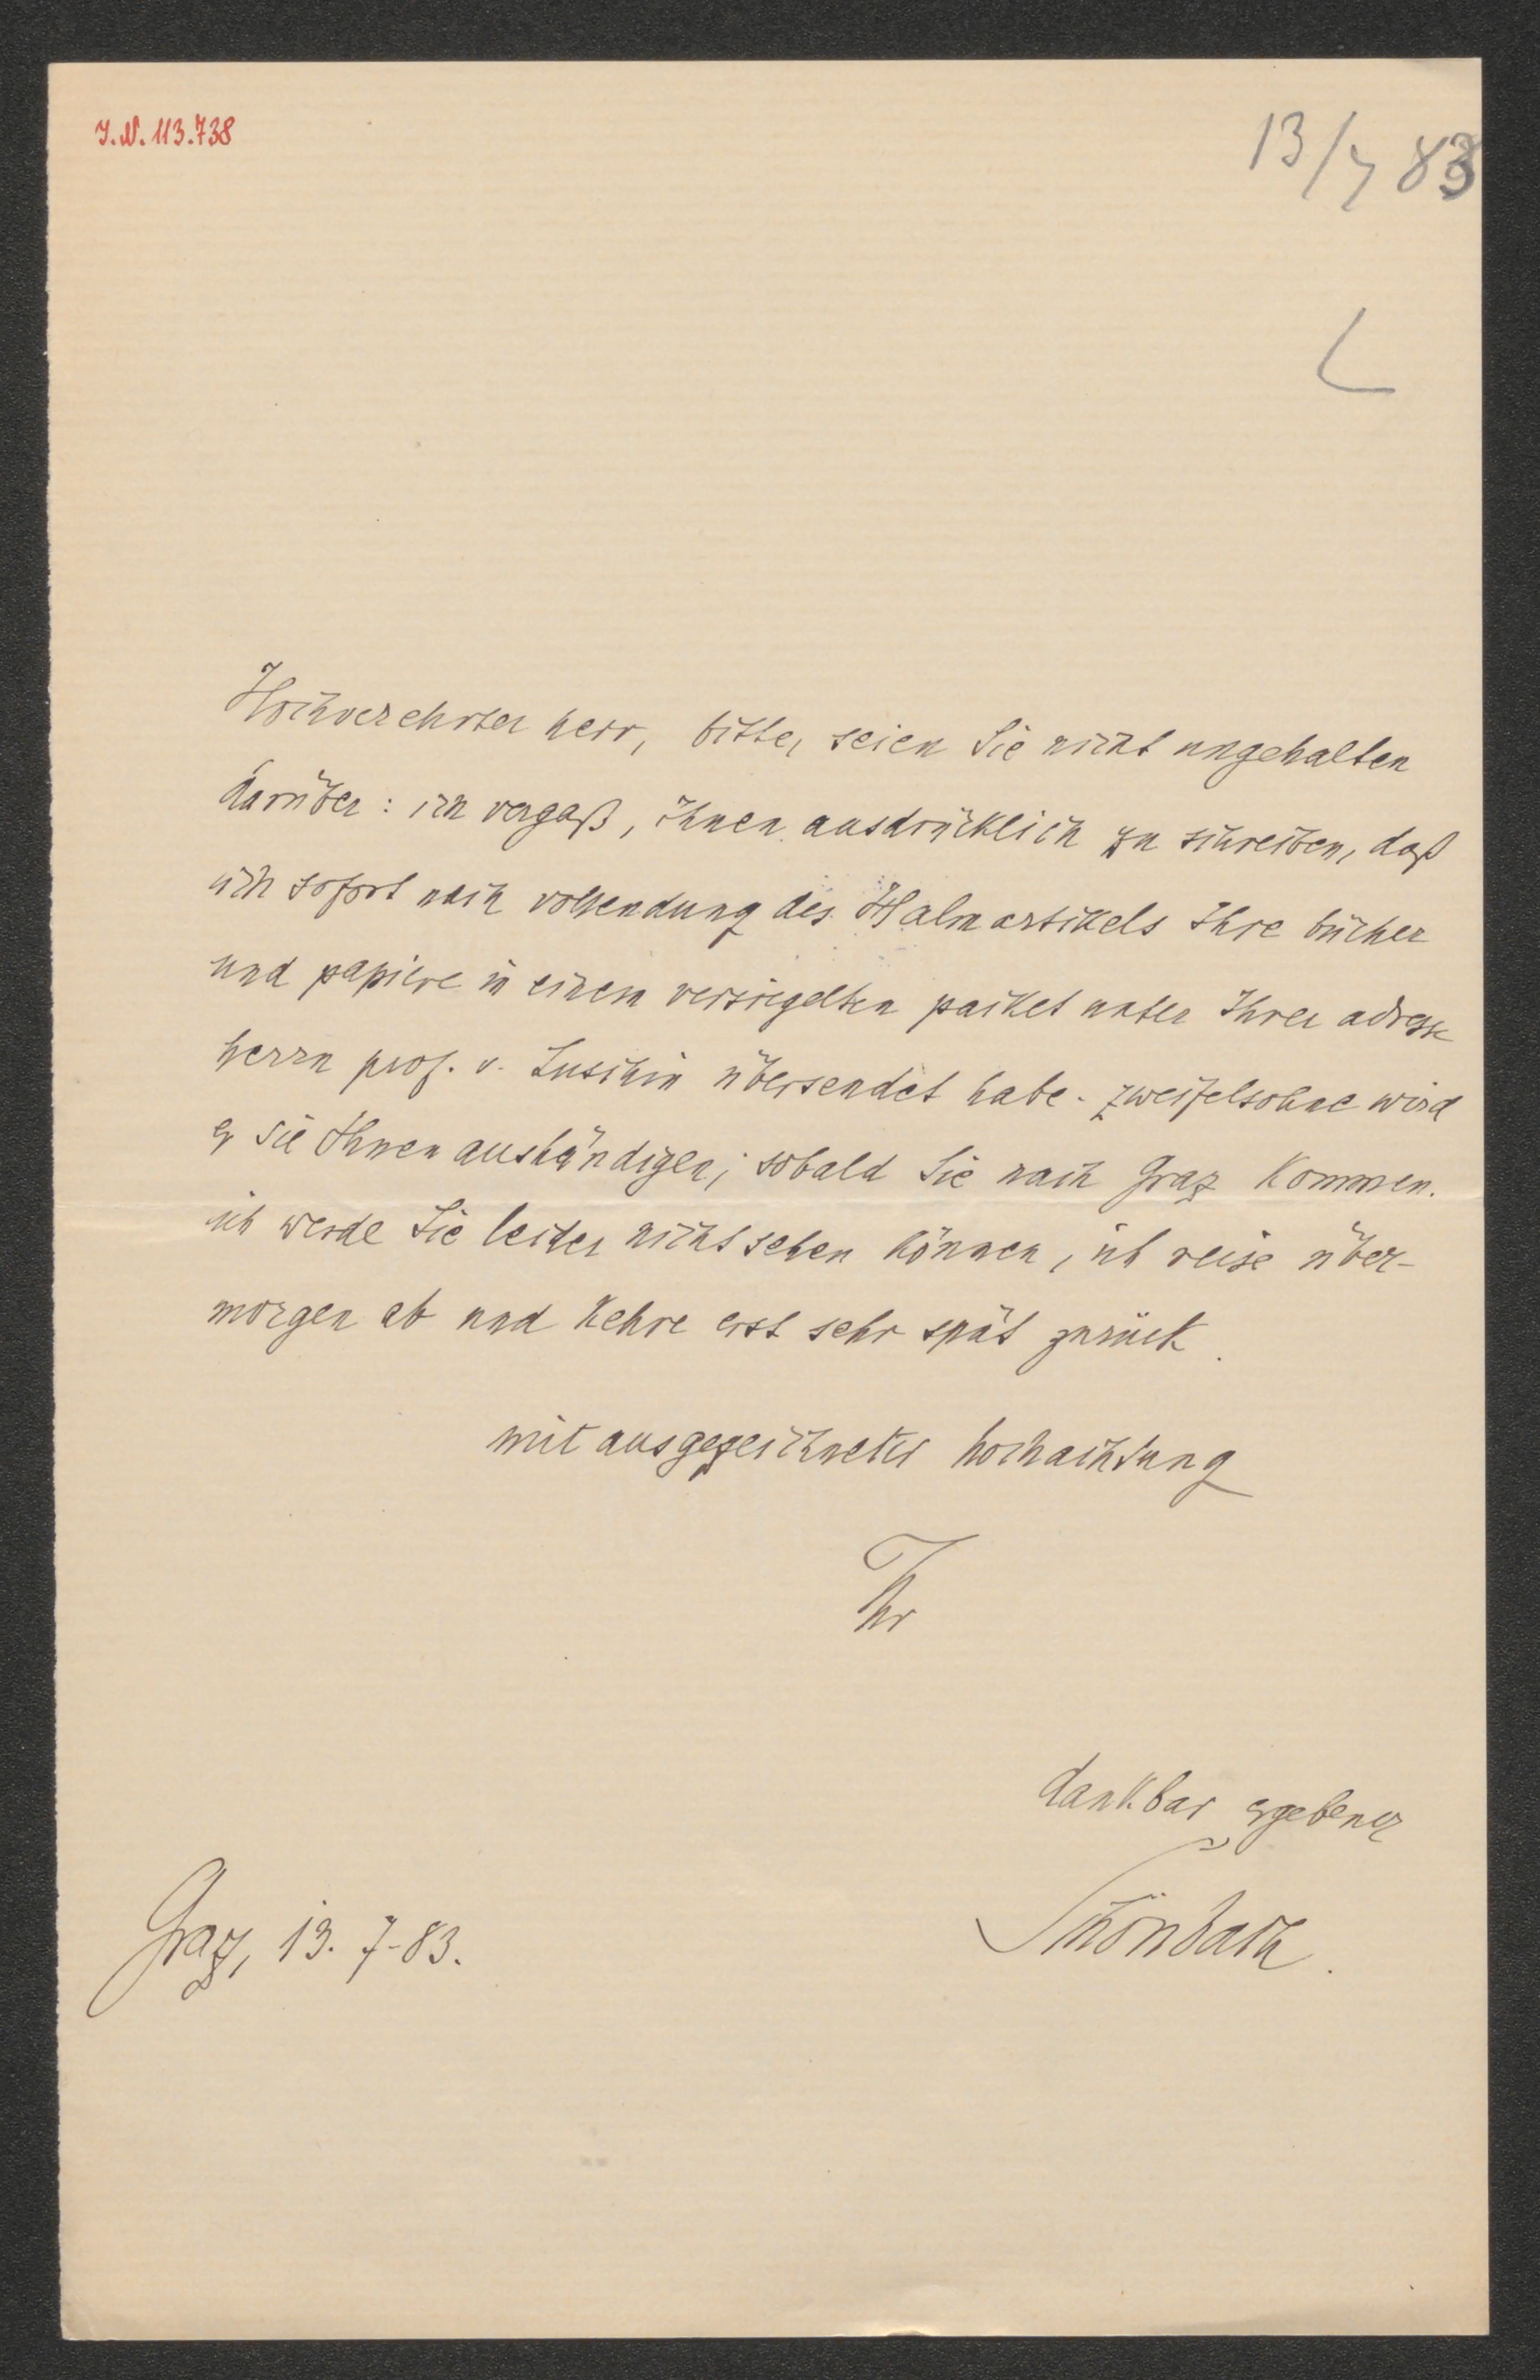 J.N. 113.738
13/7 83
Hochverehrter herr, bitte, seien Sie nicht ungehalten
darüber: ich vergaß, ihnen ausdrücklich zu schreiben, daß
ich sofort nach vollendung des Halmartikels Ihre bücher
und papiere in einem versiegelten packet unter Ihrer adresse
herrn prof. v. Luschin übersendet habe. zweifelsohne wird
er sie Ihnen aushändigen, sobald Sie nach Graz kommen.
ich werde Sie leider nicht sehen können, ich reise über-
morgen ab und kehre erst sehr spät zurück.
mit ausgezeichneter hochachtung
Ihr
dankbar ergebener
Schönbach.
Graz, 13. 7-83.